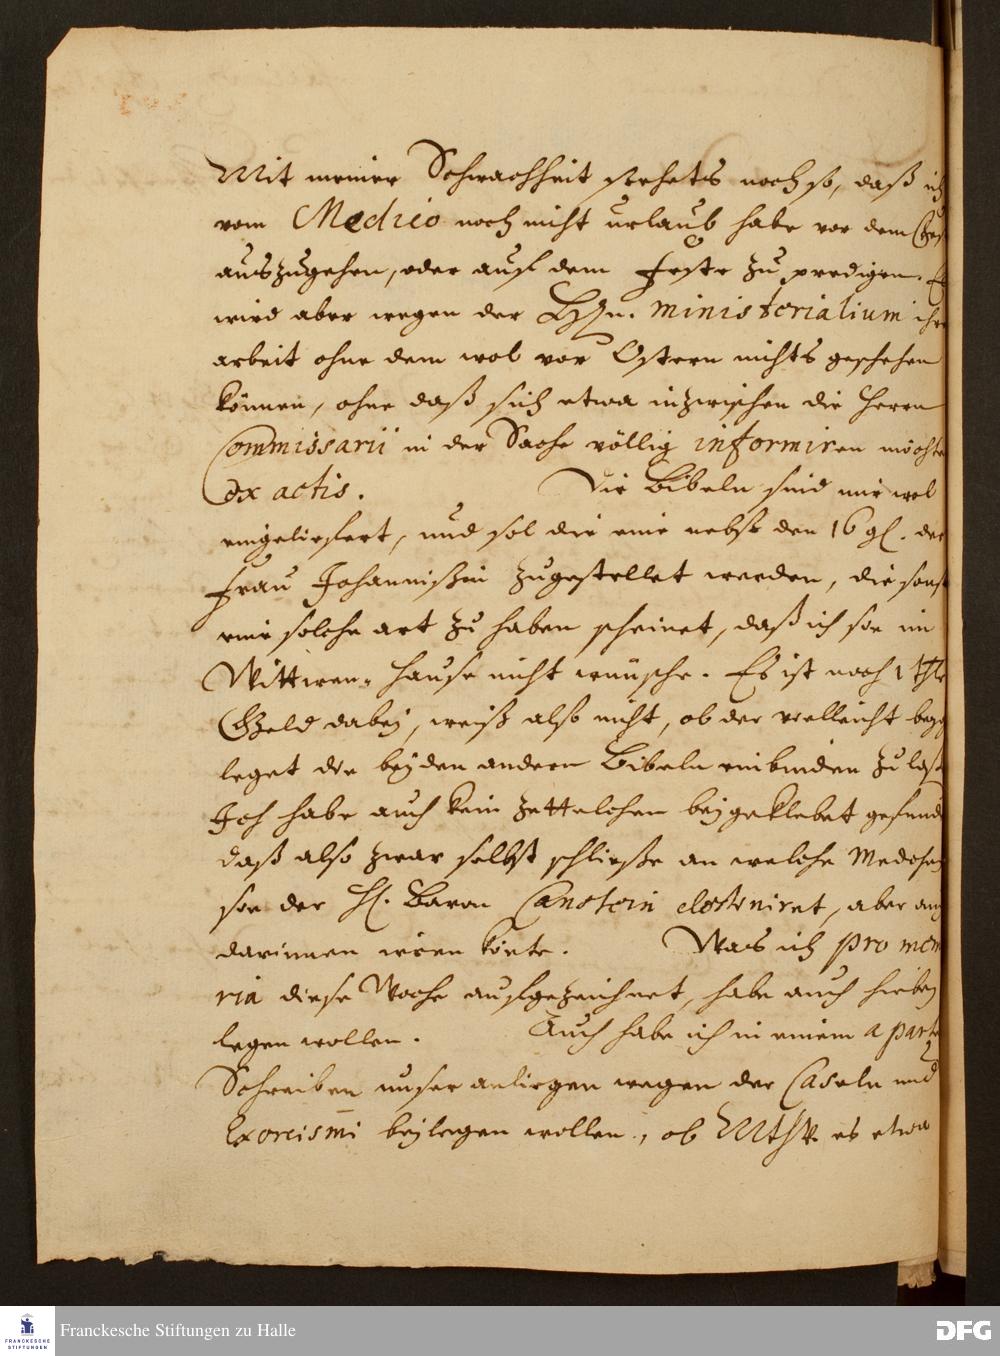 Mit meiner Schwachheit stehets noch so, daß ich
vom Medico noch nicht urlaub habe vor dem Fest
auszugehen, oder auf dem Feste zu predigen. Es
wird aber wegen der HHn. Ministerialium ihre
arbeit ohne dem wol vor Ostern nichts geschehen
können, ohne daß sich etwa inzwischen die Herrn
Commissarii in der Sache völlig informiren möchten
ex actis. Die Bibeln sind mir wol
eingeliefert, und sol die eine nebst den 16 gl. der
Frau Johannißin zugestellet werden, die sonst
eine solche art zu haben scheinet, daß ich sie im
Wittwen-Hause nicht wünsche. Es ist noch 1 Thlr
Geld dabey, weiß also nicht, ob der vielleicht beyge
leget die beyden andern Bibeln einbinden zu laßen
Ich habe auch kein zettelchen beygeklebet gefunden
daß also zwar selbst schließe an welche Medchen
sie der H. Baron Canstein destiniret, aber auch
darinnen irren könte. Was ich pro memo
ria diese Woche aufgezeichnet, habe auch hiebey
legen wollen. Auch habe ich in einem aparten
Schreiben unser anliegen wegen der Caseln und
Exorcismi beylegen wollen, ob es etwa